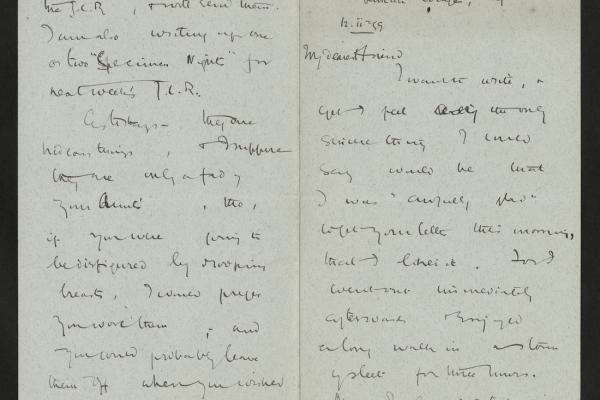 the T.C.R., & will send them.
I am also writing up one
or two "Specimen Nights" for
next week's T.C.R.
they are
hideous things, & I suppose
they are only a fad of
your Aunts', tho',
if you were going to
be disfigured by drooping
breasts, I would prefer
you wore them; and
you would probably leave
them off when you wished
12.ii.99
My dearest friend
I want to write, &
yet I feel the only
sincere thing I could
say would be that
I was "awfully glad"
to get your letter this morning,
that I liked it. For I
went out immediately
afterwards & enjoyed
a long walk in a storm
of sleet for three hours.